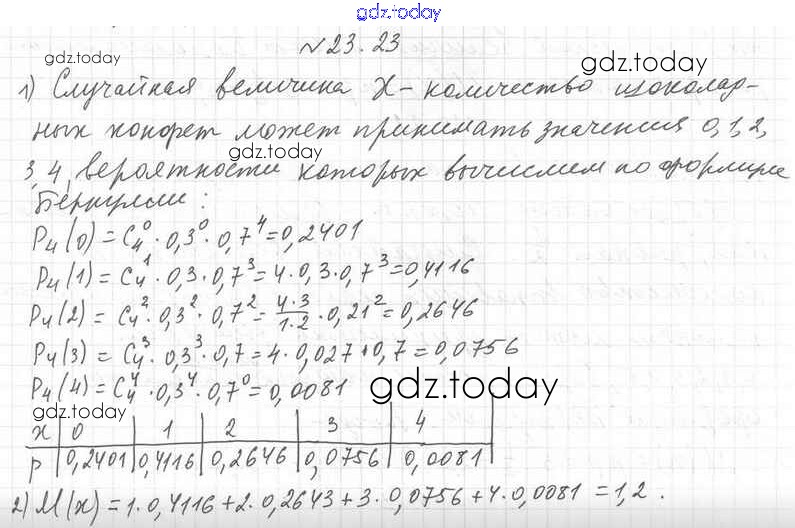 gdz.today
№23.23
gdz.today
gdz.today
1) Случайная величина X – количество шоколад-
ных конфет может принимать значения 0, 1, 2,
gdz.today
3, 4, вероятности которых вычислим по формуле
Бернулли:
P₄(0) = C₄⁰ · 0,3⁰ · 0,7⁴ = 0,2401
P₄(1) = C₄¹ · 0,3 · 0,7³ = 4 · 0,3 · 0,7³ = 0,4116
P₄(2) = C₄² · 0,3² · 0,7² = 4·3/1·2 · 0,21² = 0,2646
P₄(3) = C₄³ · 0,3³ · 0,7 = 4 · 0,027 · 0,7 = 0,0756
P₄(4) = C₄⁴ · 0,3⁴ · 0,7⁰ = 0,0081
gdz.today
gdz.today
x 0 1 2 3 4
p 0,2401 0,4116 0,2646 0,0756 0,0081
2) M(x) = 1 · 0,4116 + 2 · 0,2643 + 3 · 0,0756 + 4 · 0,0081 = 1,2.